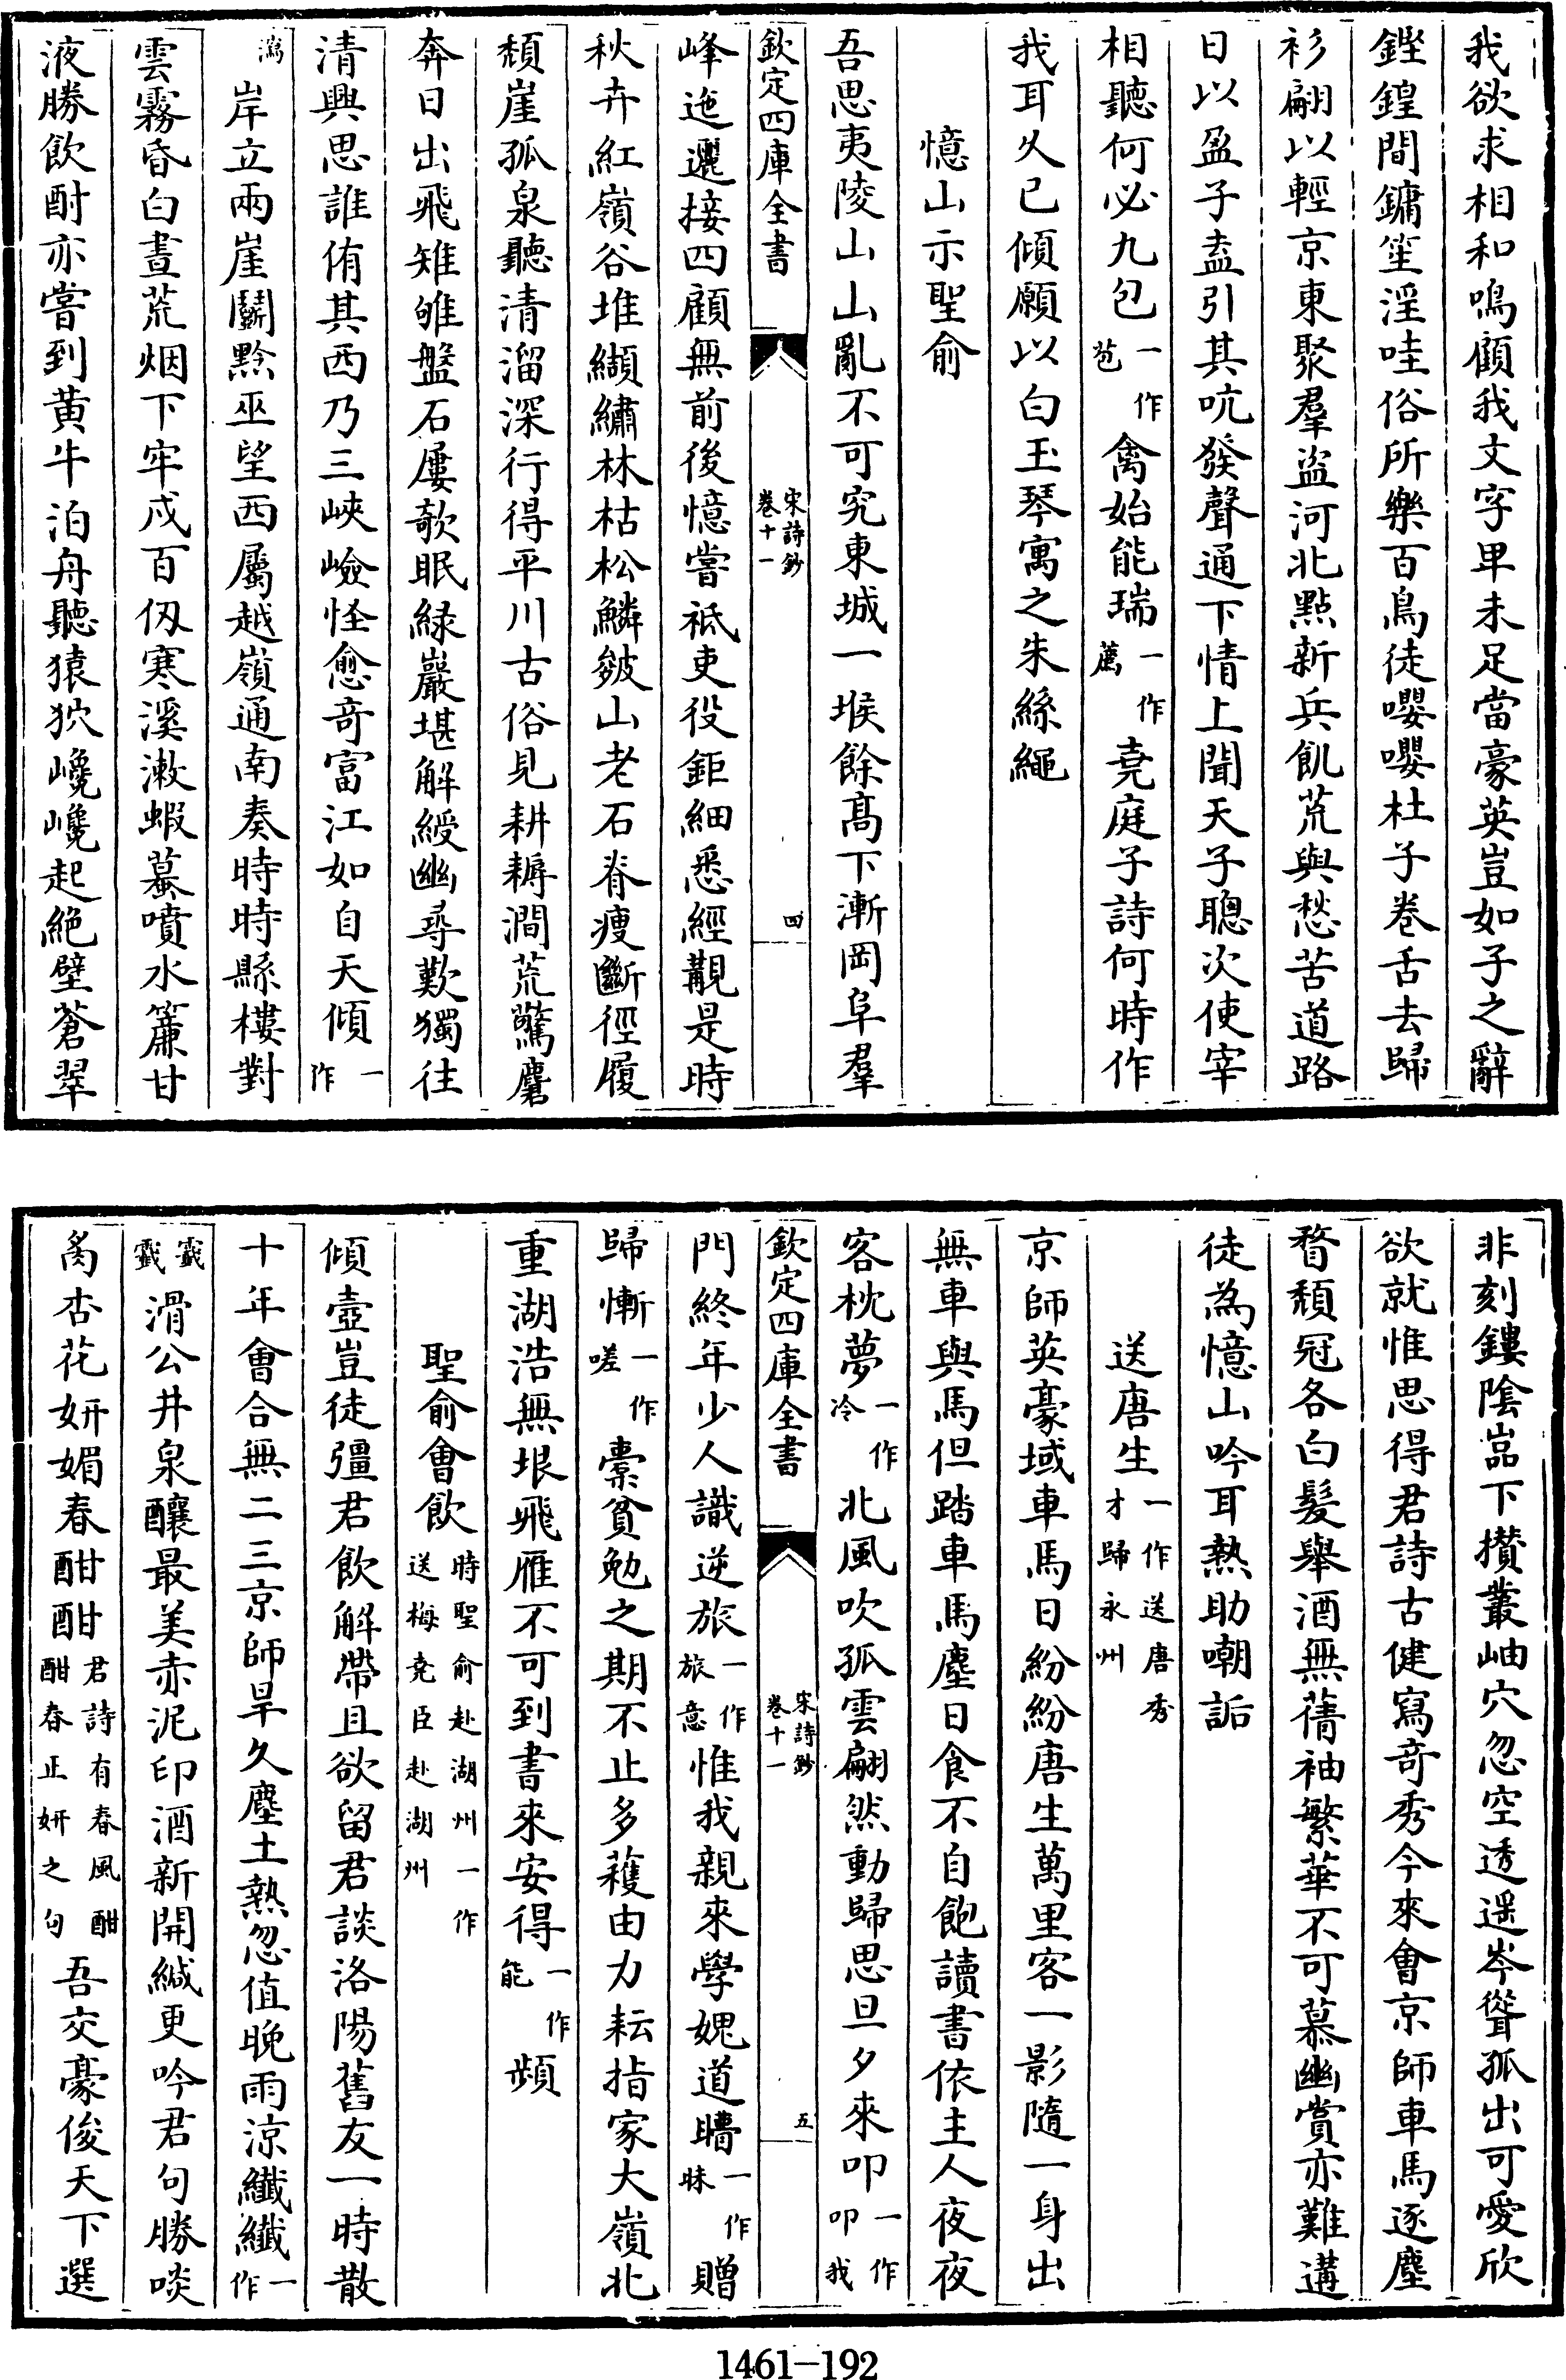 我欲求相和鳴顧我文字卑未足當豪英豈如子之辭
鏗鍠間鏞笙淫哇俗所樂百鳥徒嚶嚶杜子卷舌去歸
衫翩以輕京東聚羣盜河北點新兵飢荒與愁苦道路
日以盈子盍引其吭發聲通下情上聞天子聰次使宰
相聽何必九包一作苞禽始能瑞一作薦堯庭子詩何時作
我耳久已傾願以白玉琴寓之朱絲繩
憶山示聖俞
吾思夷陵山山亂不可究東城一堠餘髙下漸岡阜羣
欽定四庫全書
宋詩鈔
卷十一
四
峰迤邐接四顧無前後憶嘗祗吏役鉅細悉經覯是時
秋卉紅嶺谷堆纈繡林枯松鱗皴山老石脊瘦斷徑履
頹崖孤泉聽清溜深行得平川古俗見耕耨澗荒驚麏
奔日出飛雉雊盤石屢欹眠綠巖堪解綬幽尋歎獨往
清興思誰侑其西乃三峽嶮怪愈竒富江如自天傾一作
瀉岸立兩崖鬭黔巫望西屬越嶺通南奏時時縣樓對
雲霧昏白晝荒烟下牢戍百仭寒溪漱蝦蟇噴水簾甘
液勝飲酎亦嘗到黄牛泊舟聽猿狖巉巉起絕壁蒼翠
非刻鏤陰嵓下攅叢岫穴忽空透遥岑聳孤出可愛欣
欲就惟思得君詩古健寫竒秀今來會京師車馬逐塵
瞀頹冠各白髮舉酒無蒨袖繁華不可慕幽賞亦難遘
徒為憶山吟耳熱助嘲詬
送唐生一作送唐秀才歸永州
京師英豪域車馬日紛紛唐生萬里客一影隨一身出
無車與馬但踏車馬塵日食不自飽讀書依主人夜夜
客枕夢一作冷北風吹孤雲翩然動歸思旦夕來叩一作叩我
欽定四庫全書
宋詩鈔
卷十一
五
門終年少人識逆旅一作旅意惟我親來學媿道瞢一作昧贈
歸慚一作嗟橐貧勉之期不止多穫由力耘指家大嶺北
重湖浩無垠飛雁不可到書來安得一作能頻
聖俞會飲時聖俞赴湖州一作送梅堯臣赴湖州
傾壺豈徒彊君飲解帶且欲留君談洛陽舊友一時散
十年會合無二三京師旱久塵土熱忽值晚雨涼纖纖一作
霢霢滑公井泉釀最美赤泥印酒新開緘更吟君句勝啖
炙杏花妍媚春酣酣君詩有春風酣酣春正妍之句吾交豪俊天下選
1461-192